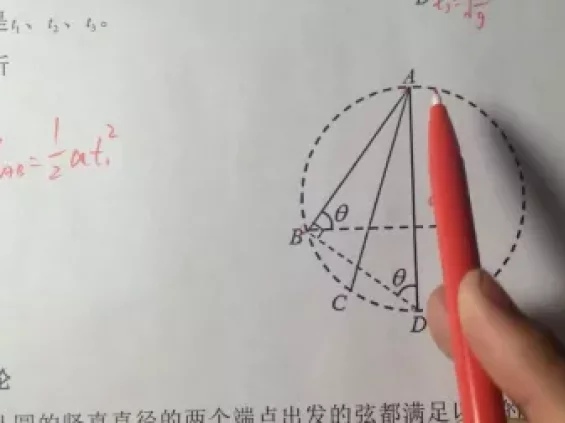 是t₁、t₂、t₃。
t₃=√
行
AB=1/2 at₁²
A
θ
B
θ
C
D
论
圆的竖直直径的两个端点出发的弦都满足以